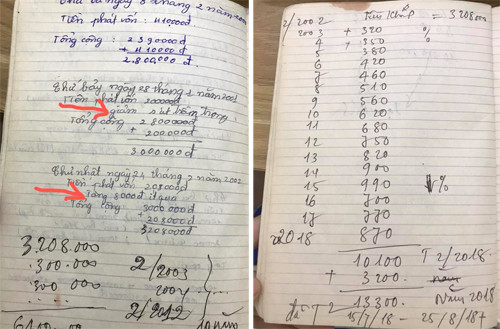 ngày 8 tháng 2 năm 2002
Tiền phát vốn : 410000đ
Tổng cộng : 2390000đ
+ 410000đ
2.800000đ
Thứ bảy ngày 28 tháng 2 năm 2002
Tiền phát vốn 200000đ
giảm sút trầm trọng
Tổng cộng 2800000đ
+ 200000đ
3000000đ
Thứ nhất ngày 21 tháng 2 năm 2002
Tiền phát vốn 208000đ
Tăng 8000đ ít quá
Tổng cộng 3000000đ
+ 208000đ
3208000đ
3.208.000
300.000 2/2003
300 000 2004
2/2012
10 năm
2/2002 = 3208000
2003 + 320 %
4 + 350 %
5 380
6 420
7 460
8 510
9 560
10 620
11 680
12 750
13 820
14 900
15 990 %
16 700
17 770
2018 870
10.100 T 2/2018
+ 3.200. năm
T2 13.300. Năm 2018
15/7/18 - 25/8/18